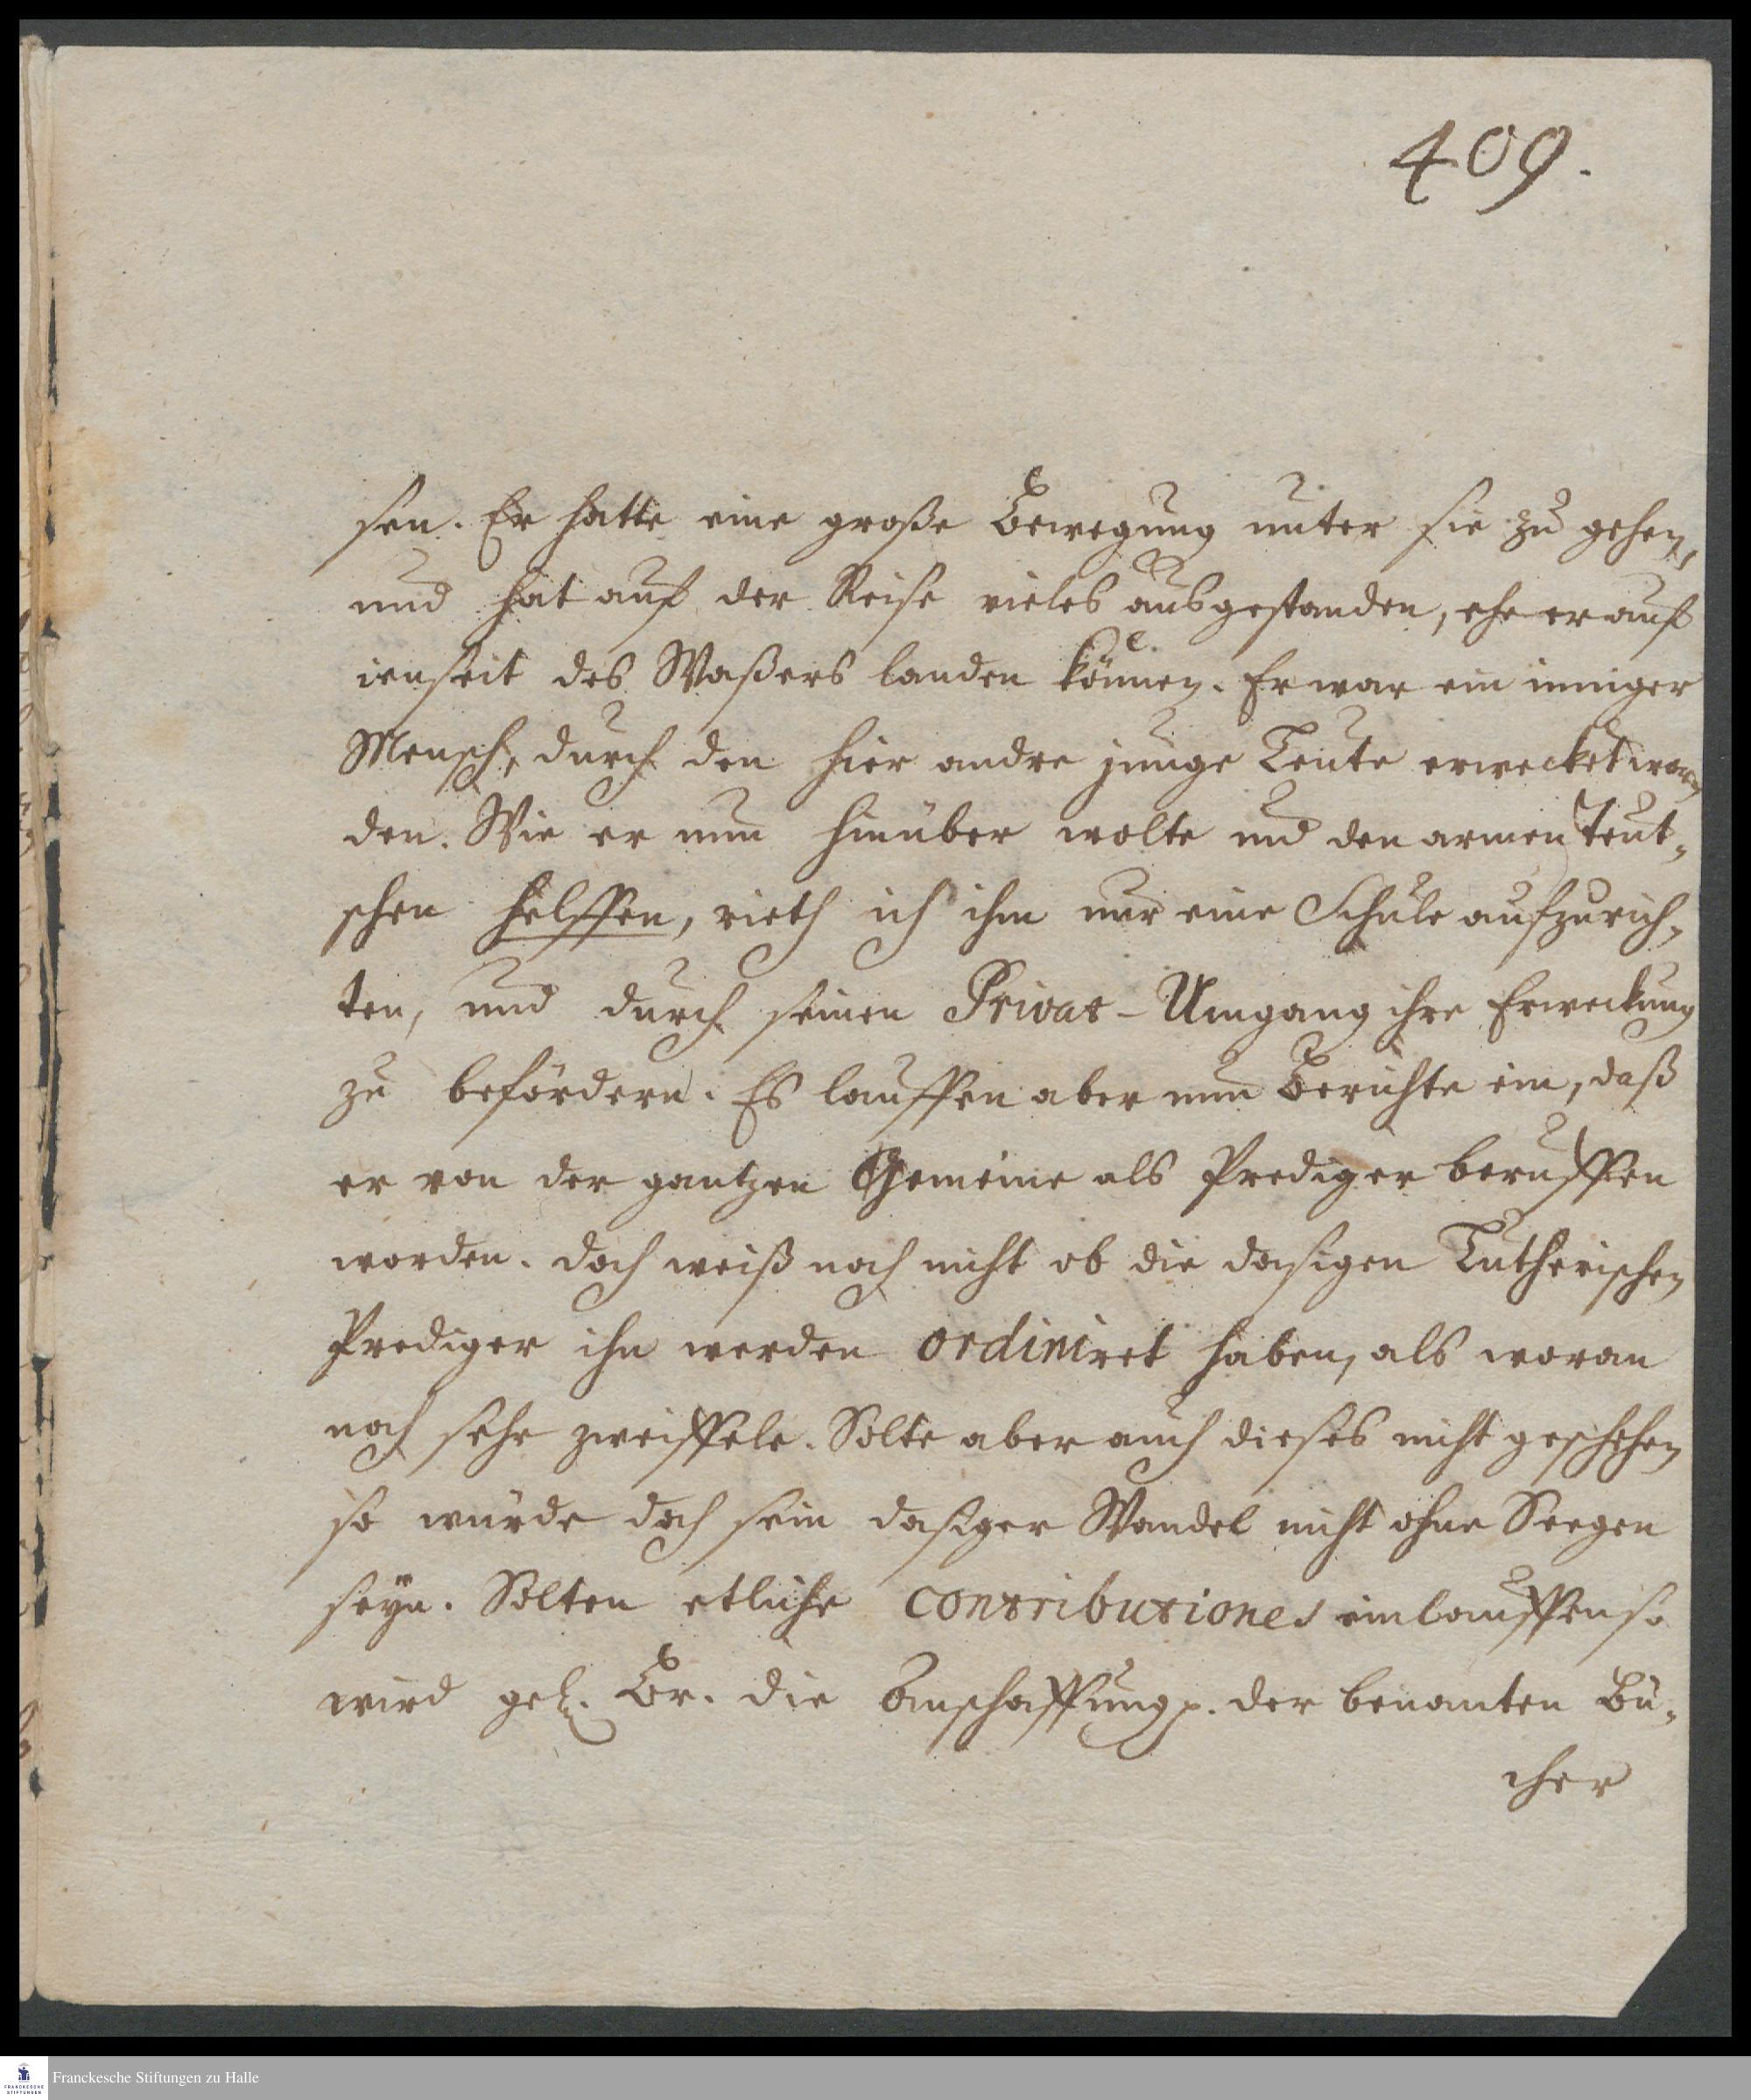 409.
sen. Er hatte eine große Bewegung unter sie zu gehen,
und hat auf der Reise vieles ausgestanden, ehe er auf
ienseit des Waßers landen können. Er war ein inniger
Mensch, durch den hier andre junge Leute erwecket wor¬
den. Wie er nun hinüber wolte und den armen Teut¬
schen helffen, rieth ich ihm nur eine Schule aufzurich¬
ten, und durch seinen Privat-Umgang ihre Erweckung
zu befördern. Es lauffen aber nun Berichte ein, daß
er von der gantzen Gemeine als Prediger beruffen
worden. Doch weiß noch nicht ob die dasigen Lutherischen
Prediger ihn werden ordiniret haben, als woran
noch sehr zweiffele. Solte aber auch dieses nicht geschehen
so würde doch sein dasiger Wandel nicht ohne Seegen
seyn. Solten etliche contributiones einlauffen so
wird gel. Br. die Anschaffung p. der benanten Bü¬
cher
FRANCKESCHE STIFTUNGEN
Franckesche Stiftungen zu Halle